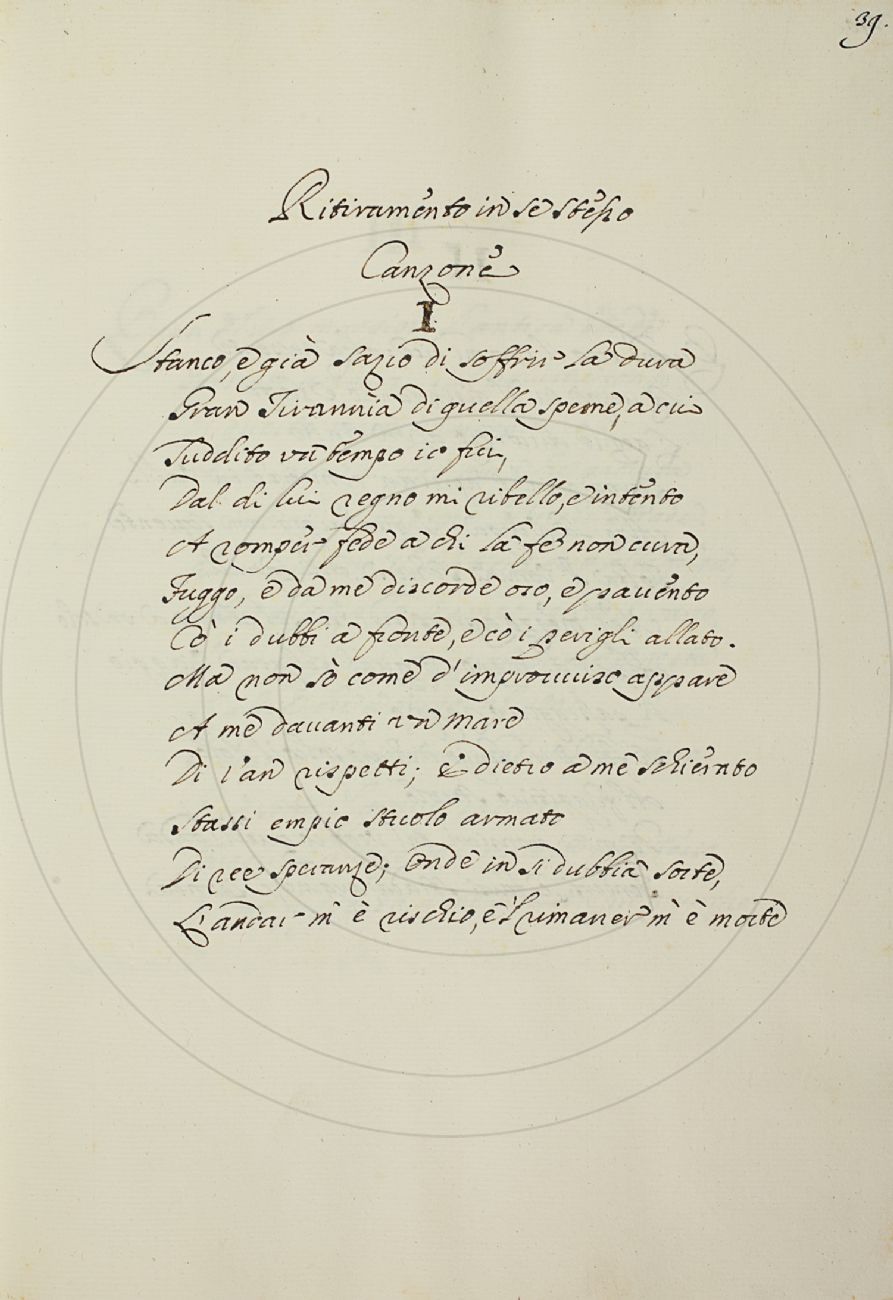 39.
Ritiramento in se stesso
Canzone
I
Stanco, e già sazio di soffrir la dura
Gran Tirannia di quella speme, a cui
Suddito un tempo io fui,
Dal di lui regno mi ribello, e intento
A romper fede a chi la fe non cura,
Fuggo, e da me discorde oso, e pavento
Cò i dubbi a fronte, e cò i perigli allato.
Ma non sò come d'improvviso appare
A me davanti un mare
Di van rispetti; e dietro a me schierato
Stassi empio stuolo armato
Di ree speranze; Onde in si dubbia sorte,
L'andar m' è rischio, e 'l rimaner m' è morte